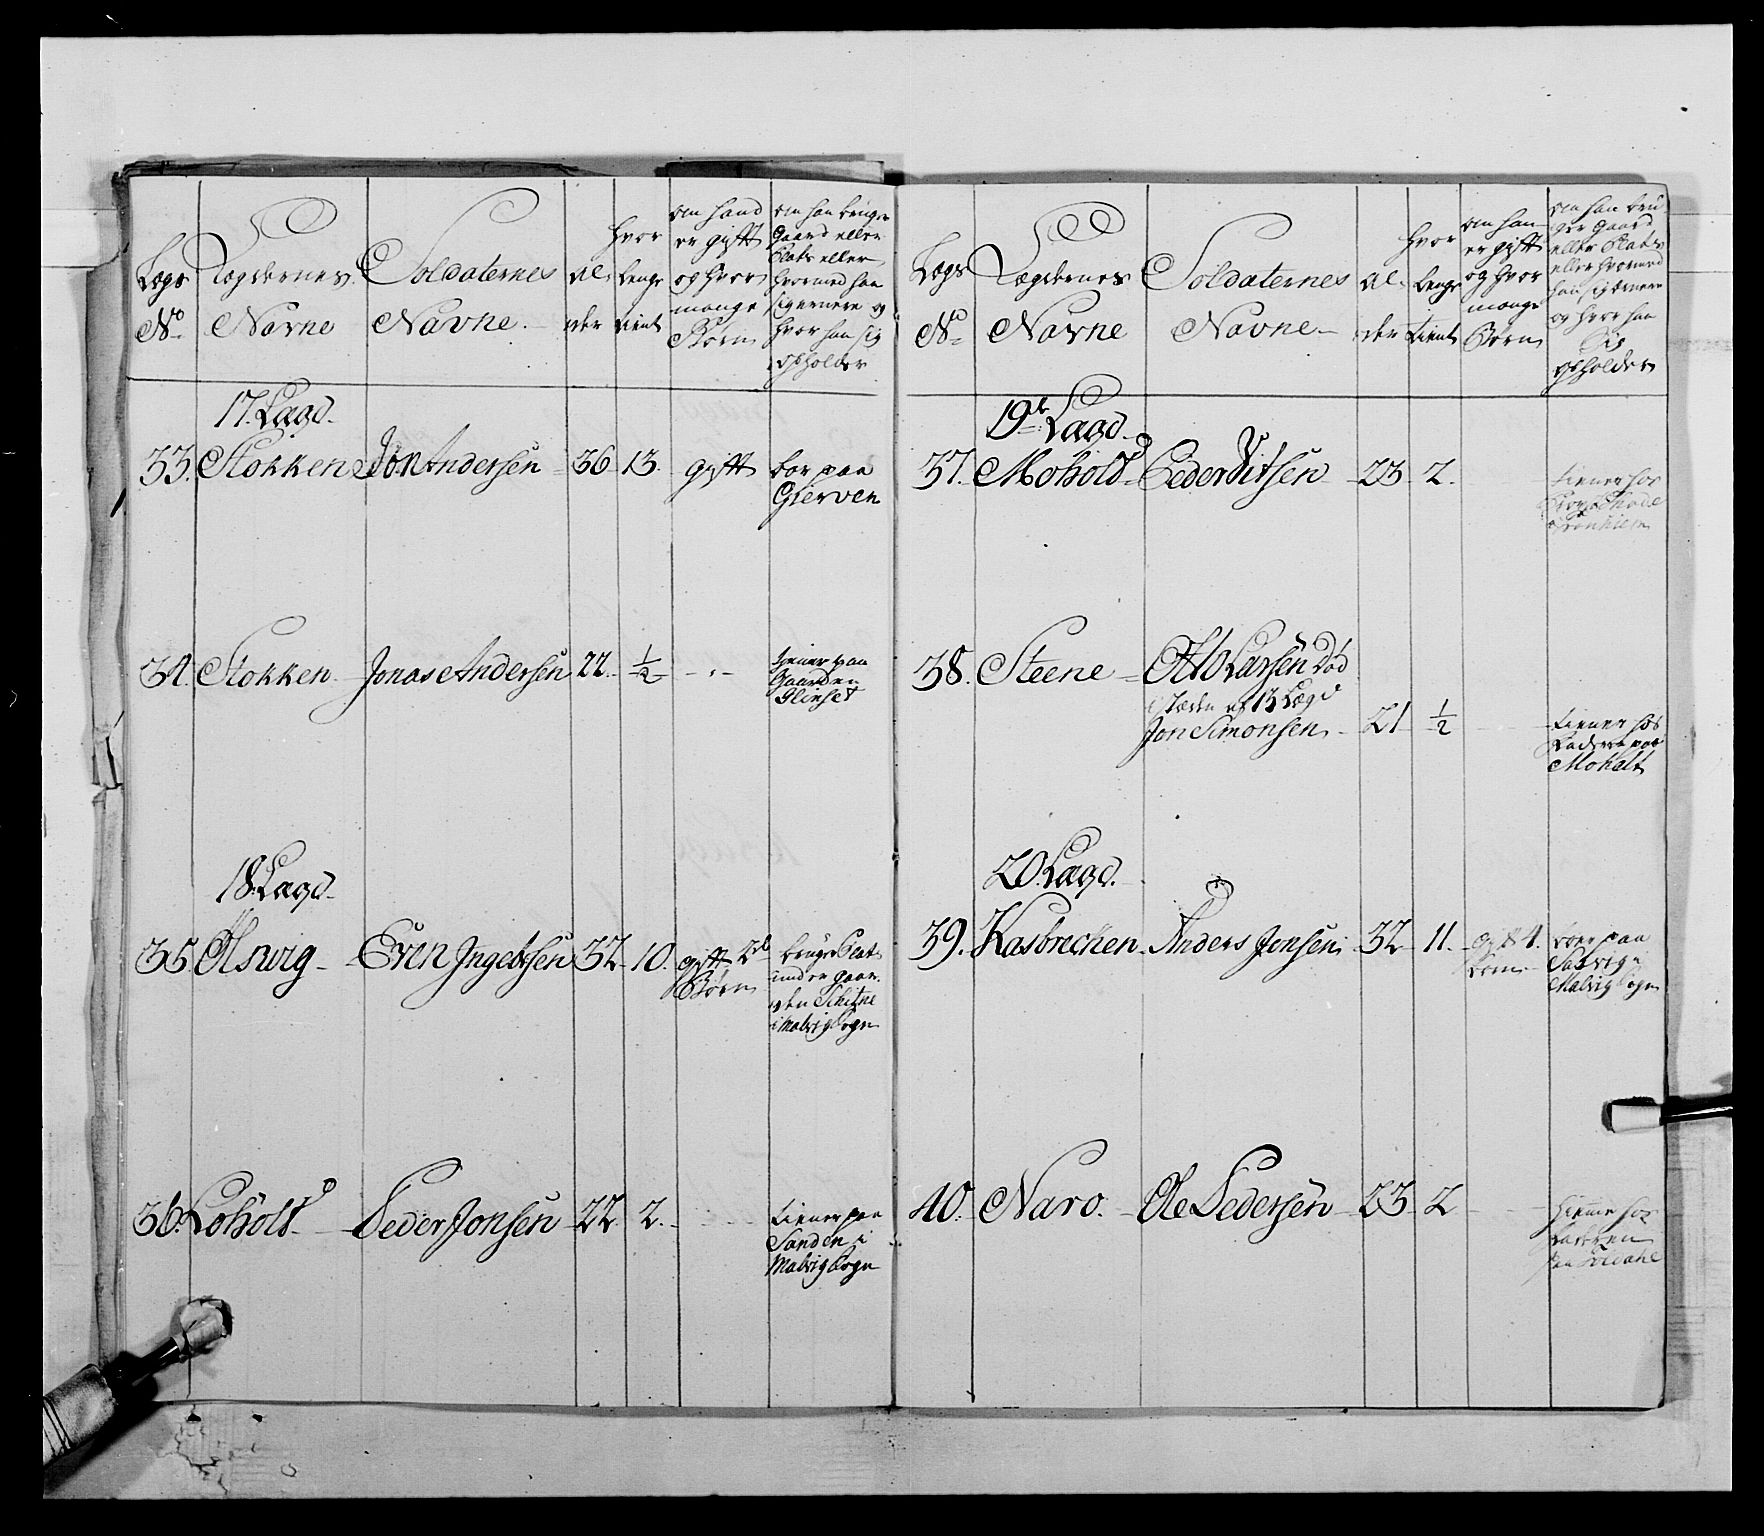 Lægs
No
Lægdernes
Navne
Soldaternes
Navne.
Al-
der
hvor
lenge
tient
om hand
er gift
og hvor
mange
Børn
om han bruger
Gaard eller
Plats eller
hvormed han
sig ernere og
hvor han sig
opholder
17. Lægd.
33. Stokken Jon Andersen 36 13. gift boer paa
Gierven
34. Stokken Jonas Andersen 22. ½ - " - tiener paa
Gaarden
Glinset
18. Lægd.
35 Olswig Even Ingebrsen 32 10. gift 2de
Børn
bruger Plats
under gaar-
den
i Malvig Sogn
36. Loholt Peder Jonsen 22 2. tiener paa
Sanden i
Malvig Sogn
Lægs
No
Lægdernes
Navne
Soldaternes
Navne
Al-
der
hvor
lenge
tient
om han
er gift
og hvor
mange
Børn
om han bru-
ger Gaard
eller Plats
eller hvormed
han sig ernere
og hvor han
sig
opholder
19de Lægd.
37. Moholt Peder Vitsen 23 2. tiener hos
Tronhiem
38. Steene Ole Larsen Død
i stæden af 13 Lægd
Jon Simonsen 21 ½ tiener hos
Faderen paa
Moholt
20. Lægd.
39. Kasbrecken Anders Jonsen 32 11. gift 4.
Børn
boer paa
Saxvig i
Malvig Sogn
40. Naro. Ole Pedersen 23 2 hiemme hos
Faderen
paa